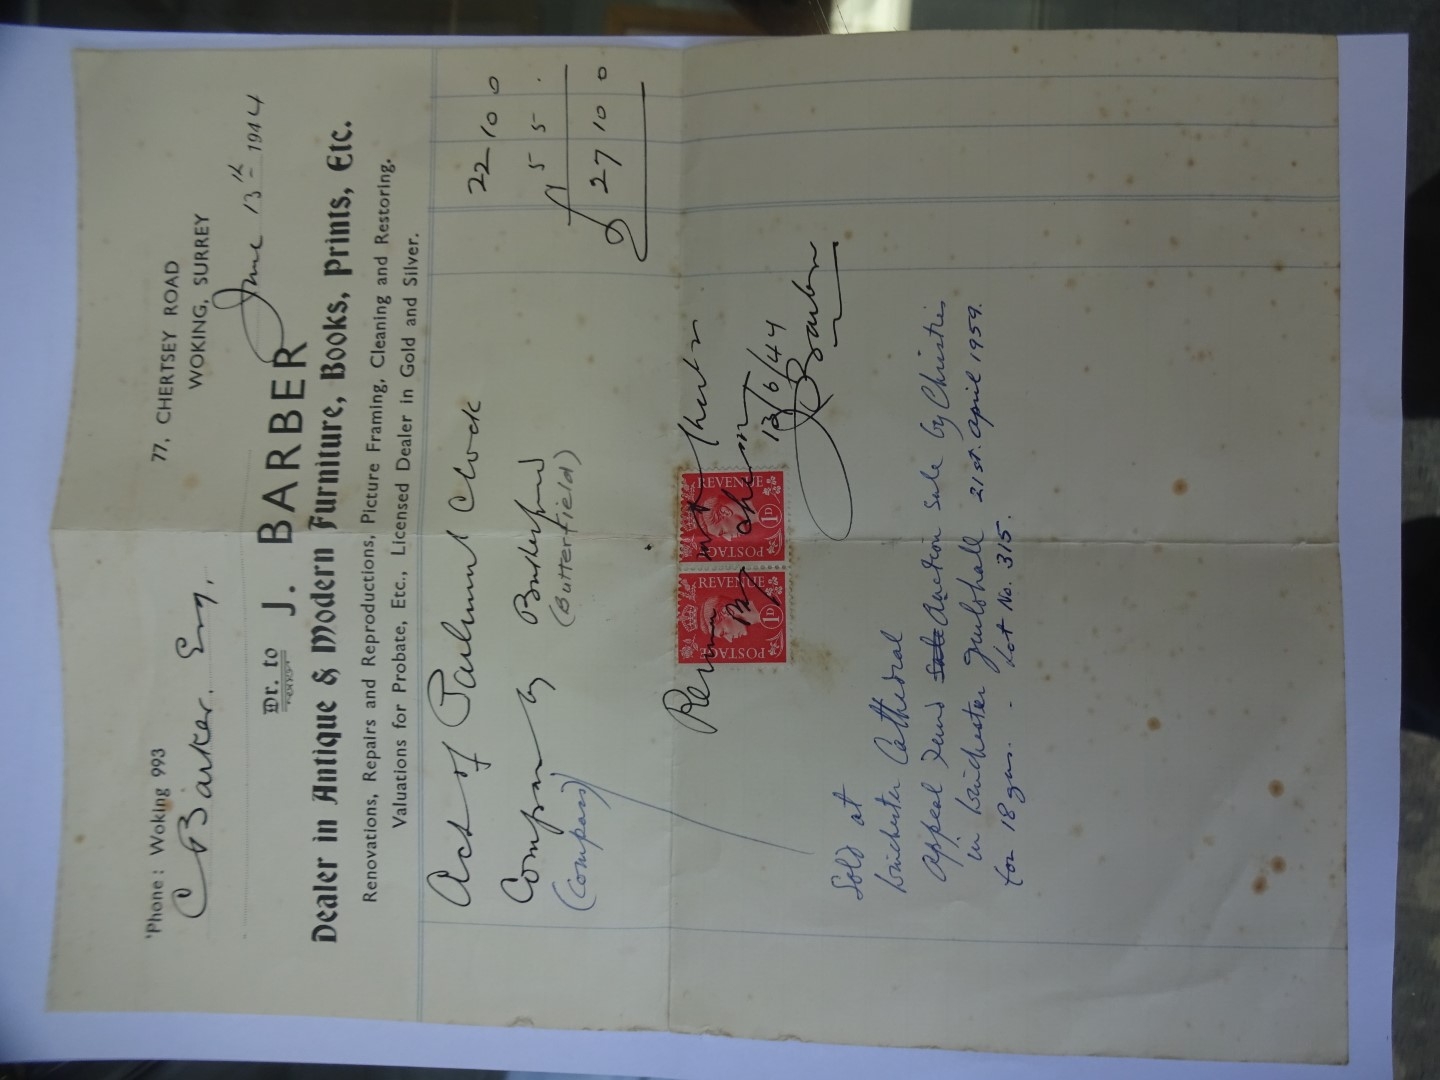 'Phone: Woking 993
77, CHERTSEY ROAD
WOKING, SURREY
June 13th 1944
C Barker. Esq.
Dr. to J. BARBER
Dealer in Antique & Modern Furniture, Books, Prints, Etc.
Renovations, Repairs and Reproductions, Picture Framing, Cleaning and Restoring.
Valuations for Probate, Etc., Licensed Dealer in Gold and Silver.
Act of Parliament Clock 22 10 0
Compass by Butterfield 5 5 .
(Compass) (Butterfield)
£ 27 10 0
POSTAGE REVENUE 1D
POSTAGE REVENUE 1D
with thanks
13/6/44
J Barber
Sold at
Winchester Cathedral
Appeal Fund Sale Auction Sale by Christies
in Winchester Guildhall 21st. April 1959.
for 18 gns. - Lot No. 315.